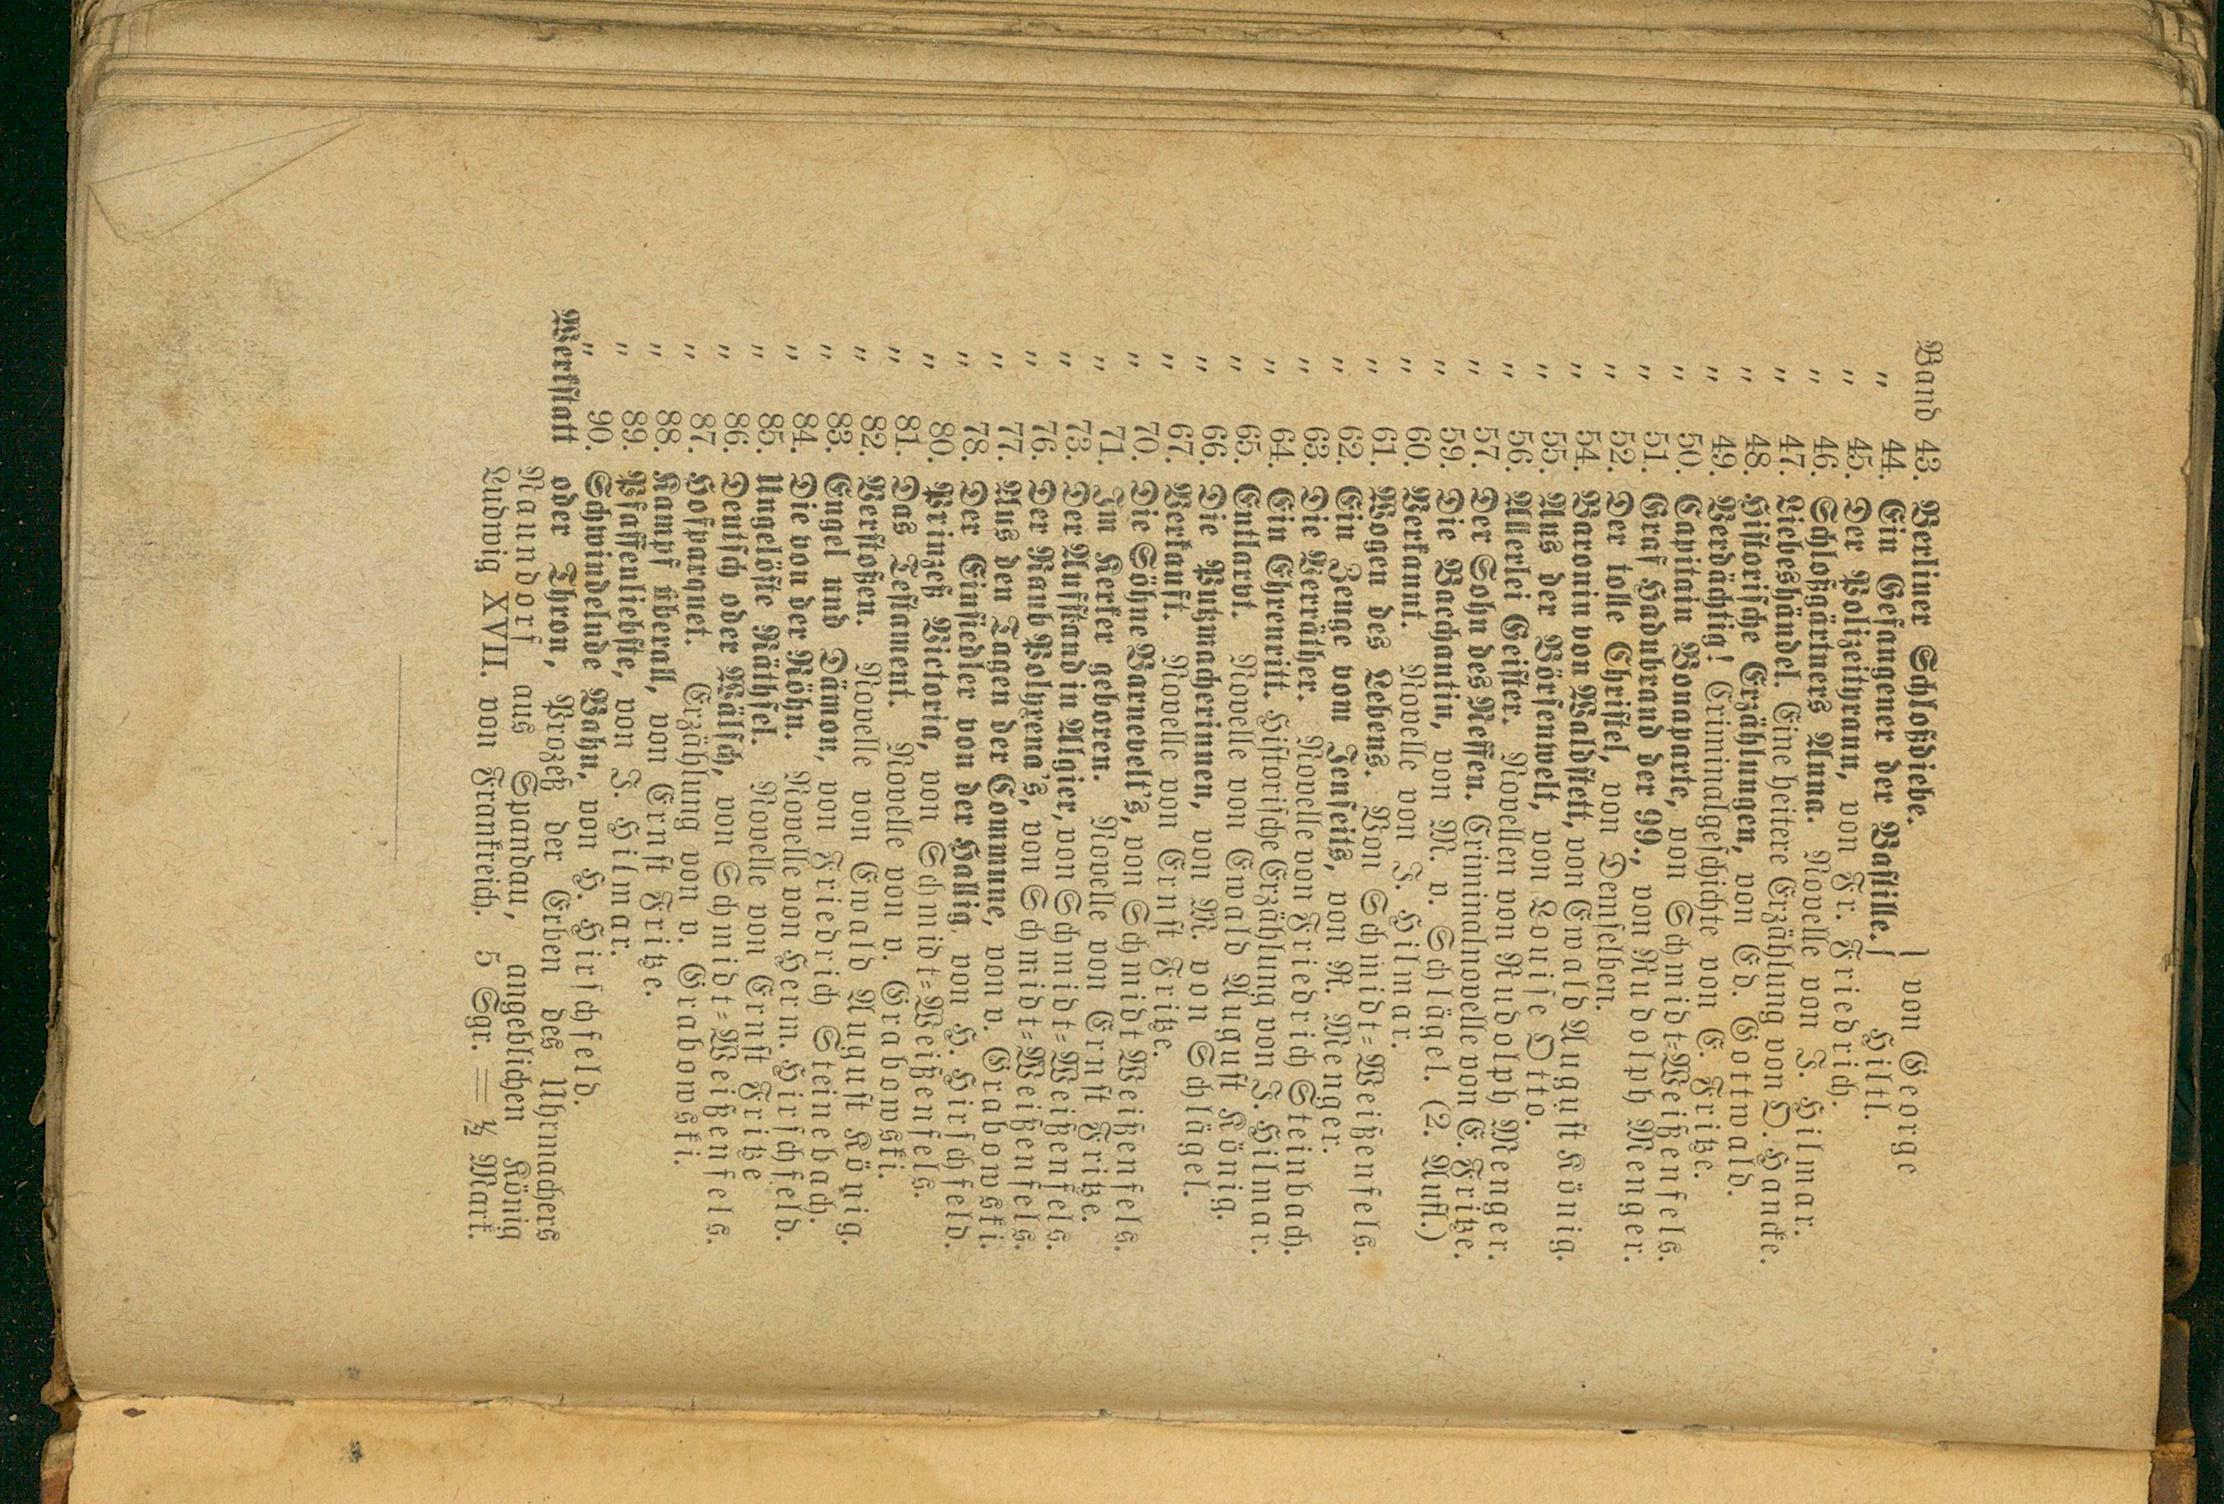 Band 43. Berliner Schloßdiebe. } von George
„ 44. Ein Gefangener der Bastille. } Hiltl.
„ 45. Der Polizeithrann, von Fr. Friedrich.
„ 46. Schloßgärtners Anna. Novelle von J. Hilmar.
„ 47. Liebeshändel. Eine heitere Erzählung von O. Hancke.
„ 48. Historische Erzählungen, von Ed. Gottwald.
„ 49. Verdächtig! Criminalgeschichte von E. Fritze.
„ 50. Capitain Bonaparte, von Schmidt-Weißenfels.
„ 51. Graf Hadubrand der 99., von Rudolph Menger.
„ 52. Der tolle Christel, von Demselben.
„ 54. Baronin von Waldstett, von Ewald August König.
„ 55. Aus der Börsenwelt, von Louise Otto.
„ 56. Allerlei Geister. Novellen von Rudolph Menger.
„ 57. Der Sohn des Neffen. Criminalnovelle von E. Fritze.
„ 59. Die Bacchantin, von M. v. Schlägel. (2. Aufl.)
„ 60. Verkannt. Novelle von J. Hilmar.
„ 61. Wogen des Lebens. Von Schmidt-Weißenfels.
„ 62. Ein Zeuge vom Jenseits, von R. Menger.
„ 63. Die Verräther. Novelle von Friedrich Steinbach.
„ 64. Ein Ehrenritt. Historische Erzählung von J. Hilmar.
„ 65. Entlarvt. Novelle von Ewald August König.
„ 66. Die Putzmacherinnen, von M. von Schlägel.
„ 67. Verkauft. Novelle von Ernst Fritze.
„ 70. Die Söhne Barnevelt's, von Schmidt Weißenfels.
„ 71. Im Kerker geboren. Novelle von Ernst Fritze.
„ 73. Der Aufstand in Algier, von Schmidt-Weißenfels.
„ 76. Der Raub Polyxena's, von Schmidt-Weißenfels.
„ 77. Aus den Tagen der Commune, von v. Grabowski.
„ 78. Der Einsiedler von der Hallig, von H. Hirschfeld.
„ 80. Prinzeß Victoria, von Schmidt-Weißenfels.
„ 81. Das Testament. Novelle von v. Grabowski.
„ 82. Verstoßen. Novelle von Ewald August König.
„ 83. Engel und Dämon, von Friedrich Steinebach.
„ 84. Die von der Röhn. Novelle von Herm. Hirschfeld.
„ 85. Ungelöste Räthsel. Novelle von Ernst Fritze
„ 86. Deutsch oder Wälsch, von Schmidt-Weißenfels.
„ 87. Hofparquet. Erzählung von v. Grabowski.
„ 88. Kampf überall, von Ernst Fritze.
„ 89. Pfaffenliebste, von J. Hilmar.
„ 90. Schwindelnde Bahn, von H. Hirschfeld.
Werkstatt oder Thron, Prozeß der Erben des Uhrmachers
Naundorf aus Spandau, angeblichen König
Ludwig XVII. von Frankreich. 5 Sgr. = ½ Mark.